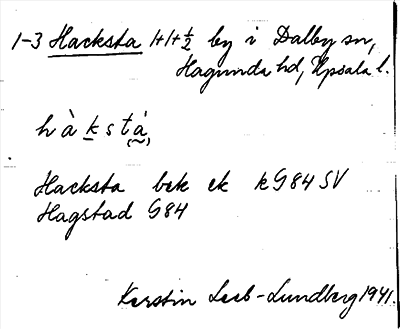 1-3 Hacksta 1+1+½ by i Dalby sn,
Hagunda hd, Upsala l.
hàkstá,
Hacksta bek ek kG84 SV
Hagstad G84
Kerstin Leeb-Lundberg 1941.